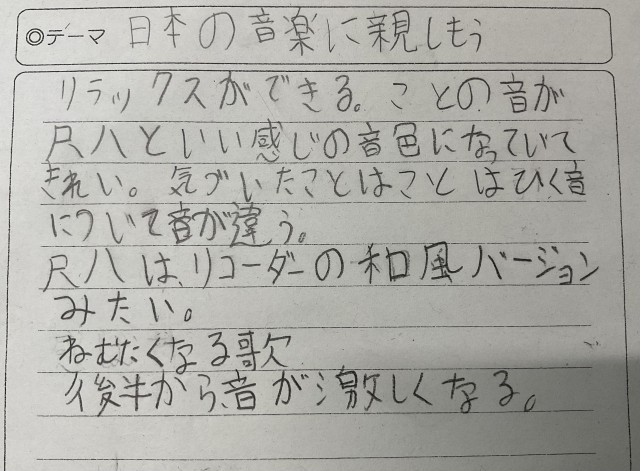 ◎テーマ 日本の音楽に親しもう
リラックスができる。ことの音が
尺八といい感じの音色になっていて
きれい。気づいたことはことはひく音
について音が違う。
尺八は、リコーダーの和風バージョン
みたい。
ねむたくなる歌
後半から音が激しくなる。